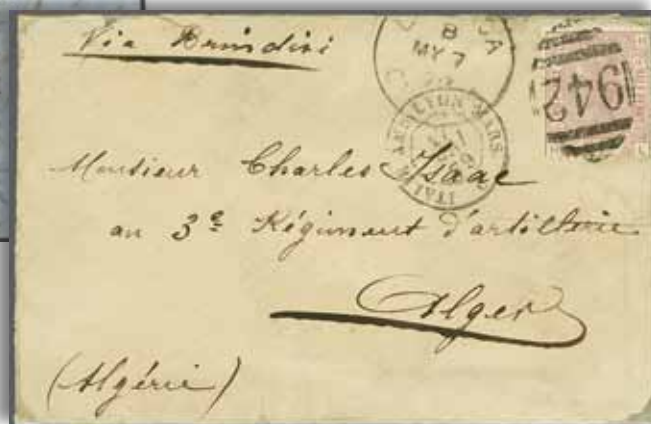 Via Brindisi
B
MY 7
942
LYON MARS
ITAL
Monsieur Charles Isaac
au 3e Régiment d'artillerie
Alger
(Algérie)